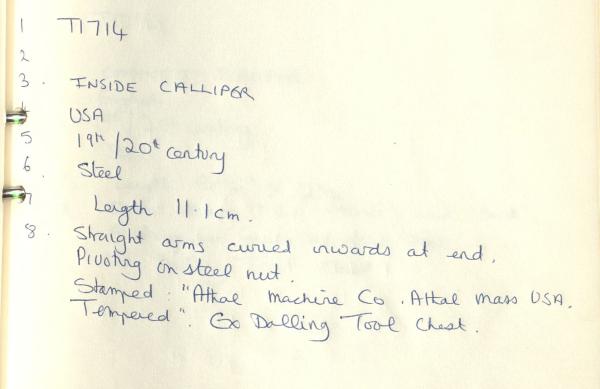 1 T1714
2
3. INSIDE CALLIPER
4 USA
5 19th/20th century
6. Steel
7 Length 11.1cm.
8. Straight arms curved inwards at end.
Pivoting on steel nut.
Stamped : "Athal Machine Co. Athal Mass USA.
Tempered". Ex Dalling Tool Chest.